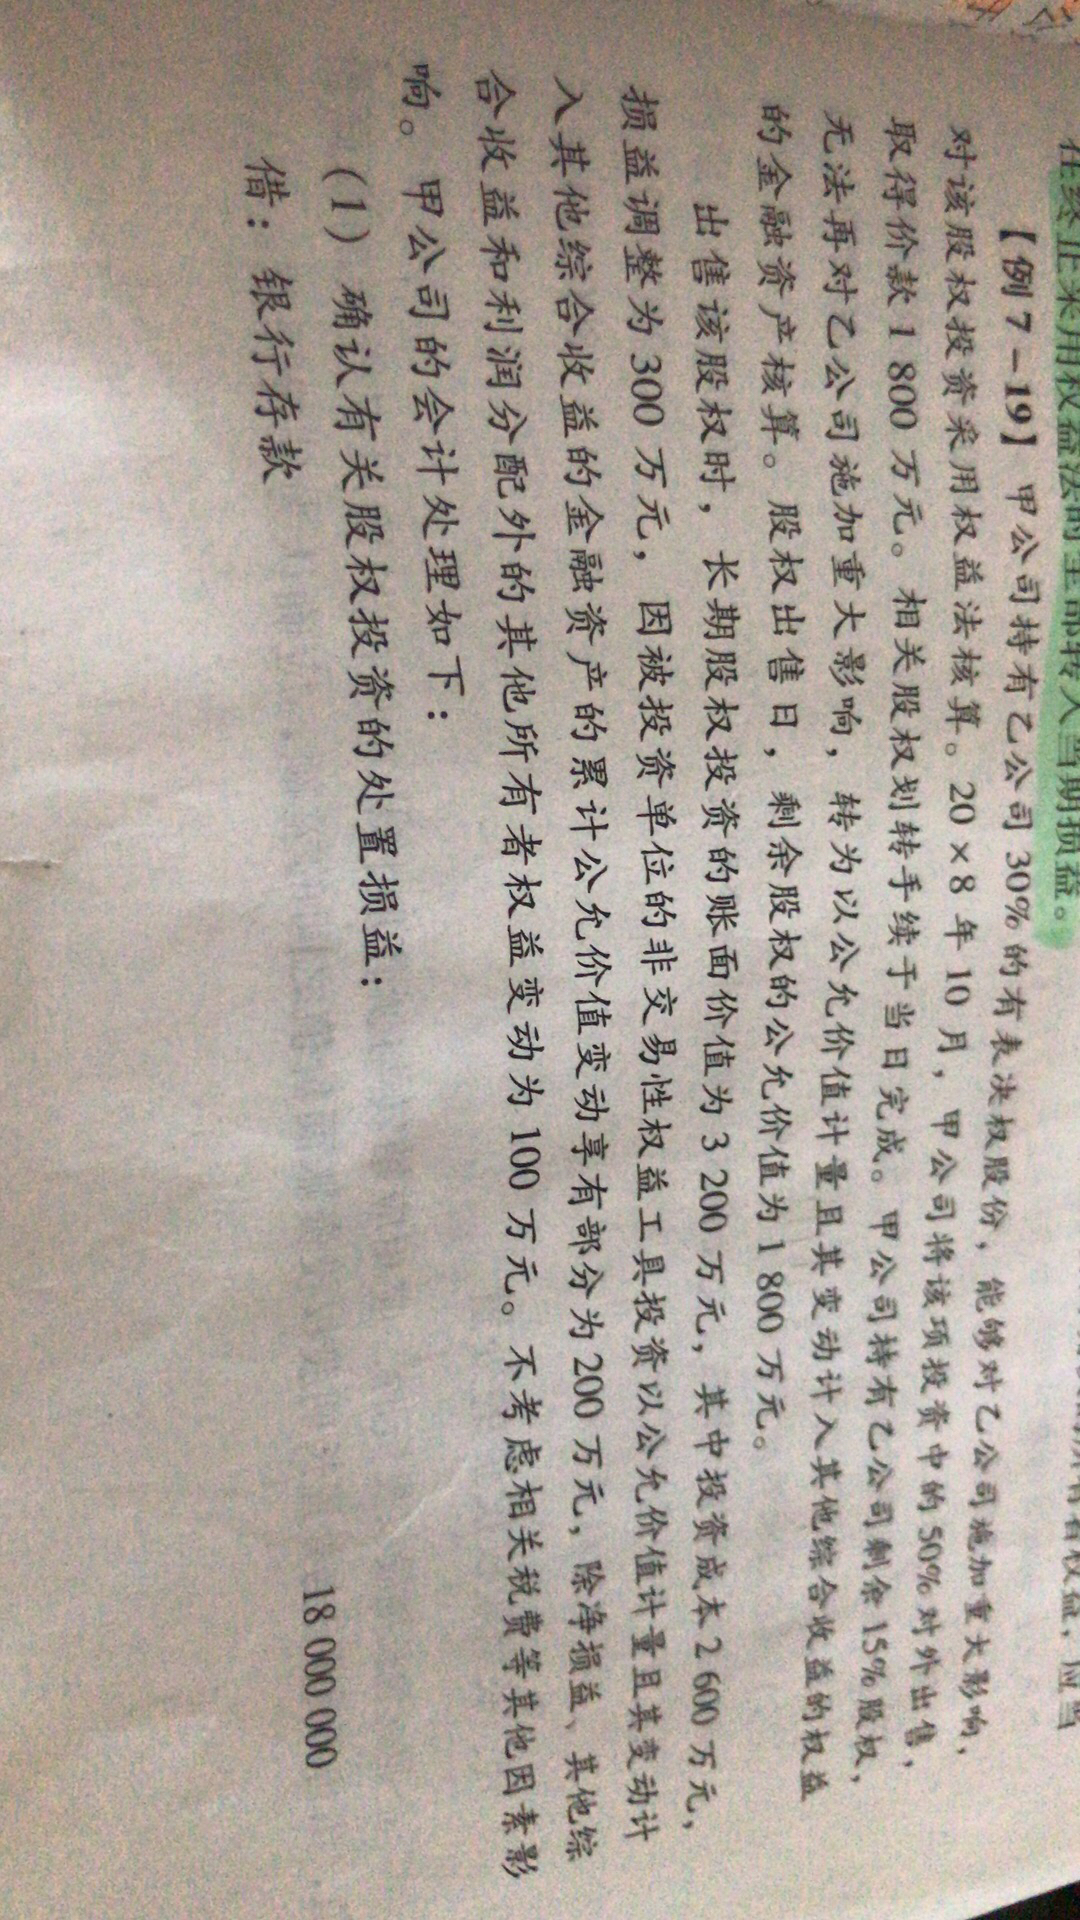 在终止采用权益法时全部转入当期损益。
【例7-19】 甲公司持有乙公司30%的有表决权股份，能够对乙公司施加重大影响，
对该股权投资采用权益法核算。20×8年10月，甲公司将该项投资中的50%对外出售，
取得价款1 800万元。相关股权划转手续于当日完成。甲公司持有乙公司剩余15%股权，
无法再对乙公司施加重大影响，转为以公允价值计量且其变动计入其他综合收益的权益
的金融资产核算。股权出售日，剩余股权的公允价值为1 800万元。
出售该股权时，长期股权投资的账面价值为3 200万元，其中投资成本2 600万元，
损益调整为300万元，因被投资单位的非交易性权益工具投资以公允价值计量且其变动计
入其他综合收益的金融资产的累计公允价值变动享有部分为200万元，除净损益、其他综
合收益和利润分配外的其他所有者权益变动为100万元。不考虑相关税费等其他因素影
响。甲公司的会计处理如下：
（1）确认有关股权投资的处置损益：
借：银行存款 18 000 000